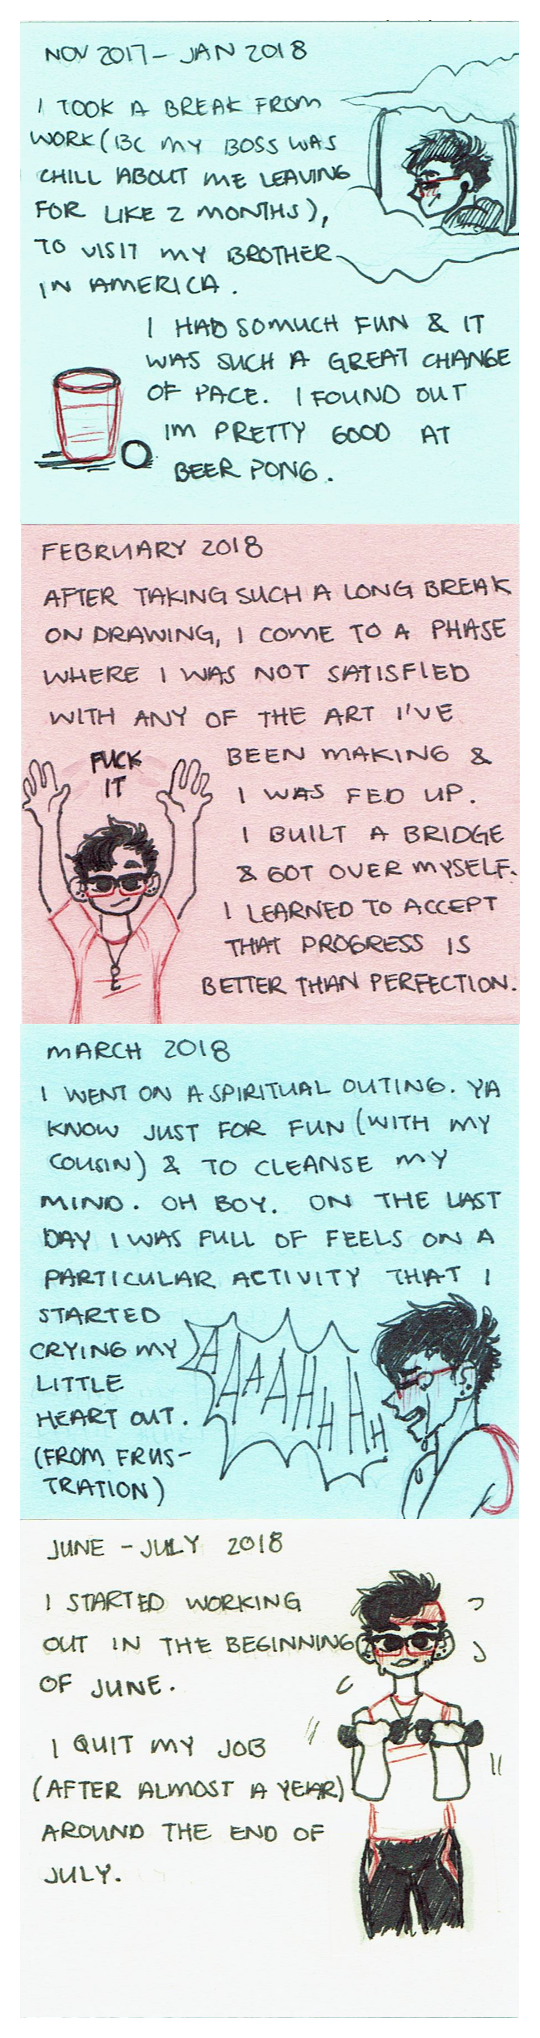 NOV 2017 - JAN 2018
I TOOK A BREAK FROM
WORK (BC MY BOSS WAS
CHILL ABOUT ME LEAVING
FOR LIKE 2 MONTHS),
TO VISIT MY BROTHER
IN AMERICA.
I HAD SO MUCH FUN & IT
WAS SUCH A GREAT CHANGE
OF PACE. I FOUND OUT
IM PRETTY GOOD AT
BEER PONG.
FEBRUARY 2018
AFTER TAKING SUCH A LONG BREAK
ON DRAWING, I COME TO A PHASE
WHERE I WAS NOT SATISFIED
WITH ANY OF THE ART I'VE
BEEN MAKING &
I WAS FED UP.
I BUILT A BRIDGE
& GOT OVER MYSELF.
I LEARNED TO ACCEPT
THAT PROGRESS IS
BETTER THAN PERFECTION.
FUCK
IT
MARCH 2018
I WENT ON A SPIRITUAL OUTING. YA
KNOW JUST FOR FUN (WITH MY
COUSIN) & TO CLEANSE MY
MIND. OH BOY. ON THE LAST
DAY I WAS FULL OF FEELS ON A
PARTICULAR ACTIVITY THAT I
STARTED
CRYING MY
LITTLE
HEART OUT.
(FROM FRUS-
TRATION)
AAAAHHHAH
JUNE - JULY 2018
I STARTED WORKING
OUT IN THE BEGINNING
OF JUNE.
I QUIT MY JOB
(AFTER ALMOST A YEAR)
AROUND THE END OF
JULY.